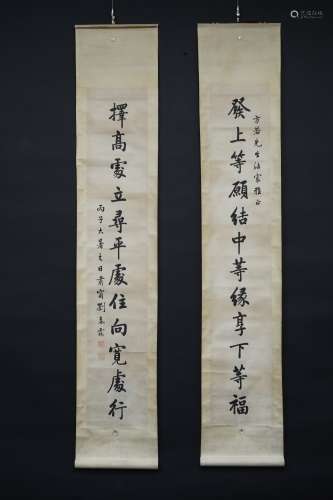 發上等願結中等緣享下等福
方若先生法家雅正
擇高處立尋平處住向寬處行
丙子大暑之日肅甯劉春霖